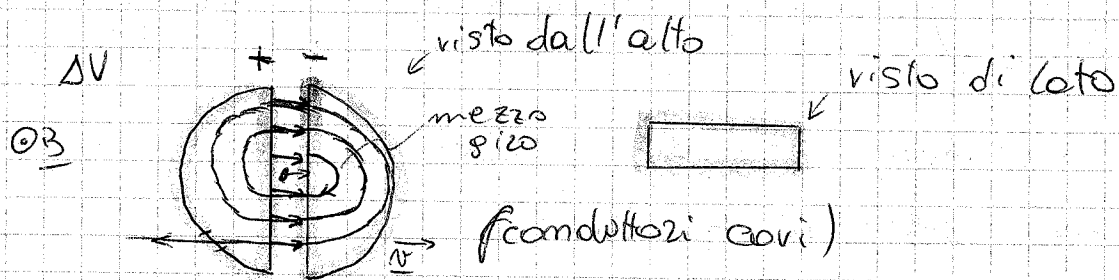 visto dall'alto
+ -
ΔV
visto di lato
mezzo giro
⊙B
(conduttori cavi)
v